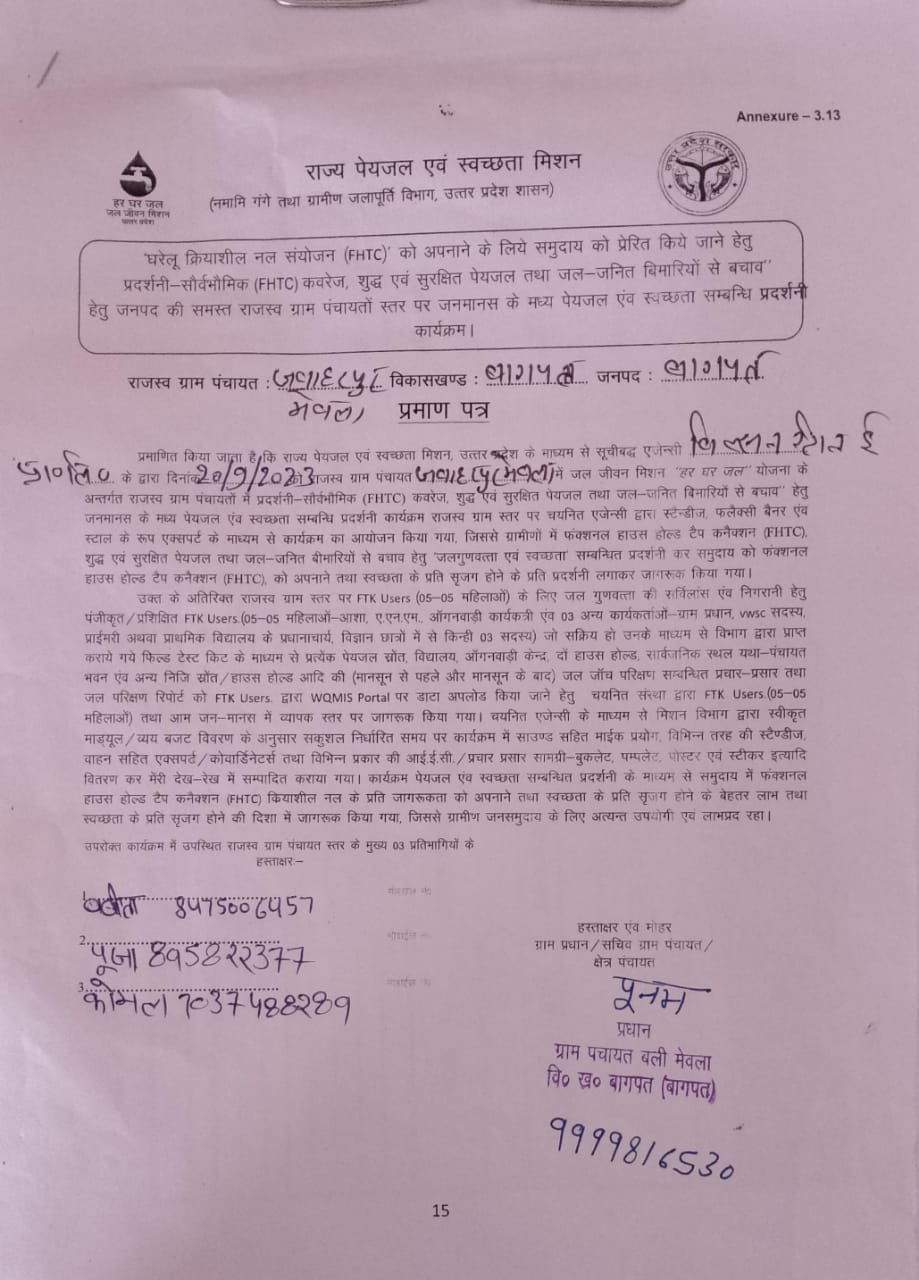 Annexure – 3.13
हर घर जल
जल जीवन मिशन
उत्तर प्रदेश
राज्य पेयजल एवं स्वच्छता मिशन
(नमामि गंगे तथा ग्रामीण जलापूर्ति विभाग, उत्तर प्रदेश शासन)
उत्तर प्रदेश सरकार
'घरेलू क्रियाशील नल संयोजन (FHTC)' को अपनाने के लिये समुदाय को प्रेरित किये जाने हेतु
प्रदर्शनी–सौर्वभौमिक (FHTC) कवरेज, शुद्ध एवं सुरक्षित पेयजल तथा जल–जनित बिमारियों से बचाव"
हेतु जनपद की समस्त राजस्व ग्राम पंचायतों स्तर पर जनमानस के मध्य पेयजल एंव स्वच्छता सम्बन्धि प्रदर्शनी
कार्यक्रम।
राजस्व ग्राम पंचायत : जवाहरपुर विकासखण्ड : बागपत जनपद : बागपत
मेवला प्रमाण पत्र
प्रमाणित किया जाता है कि राज्य पेयजल एवं स्वच्छता मिशन, उत्तर प्रदेश के माध्यम से सूचीबद्ध एजेन्सी
प्रा०लि० के द्वारा दिनांक 20/9/2023 को राजस्व ग्राम पंचायत जवाहरपुर मेवला में जल जीवन मिशन "हर घर जल" योजना के
अन्तर्गत राजस्व ग्राम पंचायतों में प्रदर्शनी–सौर्वभौमिक (FHTC) कवरेज, शुद्ध एवं सुरक्षित पेयजल तथा जल–जनित बिमारियों से बचाव" हेतु
जनमानस के मध्य पेयजल एंव स्वच्छता सम्बन्धि प्रदर्शनी कार्यक्रम राजस्व ग्राम स्तर पर चयनित एजेन्सी द्वारा स्टेन्डीज, फलैक्सी बैनर एंव
स्टाल के रूप एक्सपर्ट के माध्यम से कार्यक्रम का आयोजन किया गया, जिससे ग्रामीणों में फंक्शनल हाउस होल्ड टैप कनैक्शन (FHTC),
शुद्ध एवं सुरक्षित पेयजल तथा जल–जनित बीमारियों से बचाव हेतु 'जलगुणवत्ता एवं स्वच्छता' सम्बन्धित प्रदर्शनी कर समुदाय को फंक्शनल
हाउस होल्ड टैप कनैक्शन (FHTC), को अपनाने तथा स्वच्छता के प्रति सृजग होने के प्रति प्रदर्शनी लगाकर जागरूक किया गया।
उक्त के अतिरिक्त राजस्व ग्राम स्तर पर FTK Users (05–05 महिलाओं) के लिए जल गुणवत्ता की सर्विलांस एंव निगरानी हेतु
पंजीकृत/प्रशिक्षित FTK Users.(05–05 महिलाओं–आशा, ए.एन.एम., ऑगनवाड़ी कार्यकत्री एंव 03 अन्य कार्यकर्ताओं–ग्राम प्रधान, vwsc सदस्य,
प्राईमरी अथवा प्राथमिक विद्यालय के प्रधानाचार्य, विज्ञान छात्रों में से किन्ही 03 सदस्य) जो सक्रिय हो उनके माध्यम से विभाग द्वारा प्राप्त
कराये गये फिल्ड टेस्ट किट के माध्यम से प्रत्येक पेयजल स्रोंत, विद्यालय, ऑगनवाड़ी केन्द्र, दों हाउस होल्ड, सार्वजनिक स्थल यथा–पंचायत
भवन एंव अन्य निजि स्रोंत/हाउस होल्ड आदि की (मानसून से पहले और मानसून के बाद) जल जॉच परिक्षण सम्बन्धित प्रचार–प्रसार तथा
जल परिक्षण रिपोर्ट को FTK Users. द्वारा WQMIS Portal पर डाटा अपलोड किया जाने हेतु चयनित संस्था द्वारा FTK Users.(05–05
महिलाओं) तथा आम जन–मानस में व्यापक स्तर पर जागरूक किया गया। चयनित एजेन्सी के माध्यम से मिशन विभाग द्वारा स्वीकृत
माड्यूल/व्यय बजट विवरण के अनुसार सकुशल निर्धारित समय पर कार्यक्रम में साउण्ड सहित माईक प्रयोग, विभिन्न तरह की स्टैण्डीज,
वाहन सहित एक्सपर्ट/कोवार्डिनेटर्स तथा विभिन्न प्रकार की आई.ई.सी./प्रचार प्रसार सामग्री–बुकलेट, पम्पलेट, पोस्टर एवं स्टीकर इत्यादि
वितरण कर मेरी देख–रेख में सम्पादित कराया गया। कार्यक्रम पेयजल एंव स्वच्छता सम्बन्धित प्रदर्शनी के माध्यम से समुदाय में फंक्शनल
हाउस होल्ड टैप कनैक्शन (FHTC) कियाशील नल के प्रति जागरूकता को अपनाने तथा स्वच्छता के प्रति सृजग होने के बेहतर लाभ तथा
स्वच्छता के प्रति सृजग होने की दिशा में जागरूक किया गया, जिससे ग्रामीण जनसमुदाय के लिए अत्यन्त उपयोगी एवं लाभप्रद रहा।
उपरोक्त कार्यक्रम में उपस्थित राजस्व ग्राम पंचायत स्तर के मुख्य 03 प्रतिभागियों के
हस्ताक्षर:–
8475006457
2. पूजा 895822377
3. कोमल 7037488289
हस्ताक्षर एंव मोहर
ग्राम प्रधान/सचिव ग्राम पंचायत/
क्षेत्र पंचायत
पूनम
प्रधान
ग्राम पचायत बली मेवला
वि० ख० बागपत (बागपत)
9999816530
15